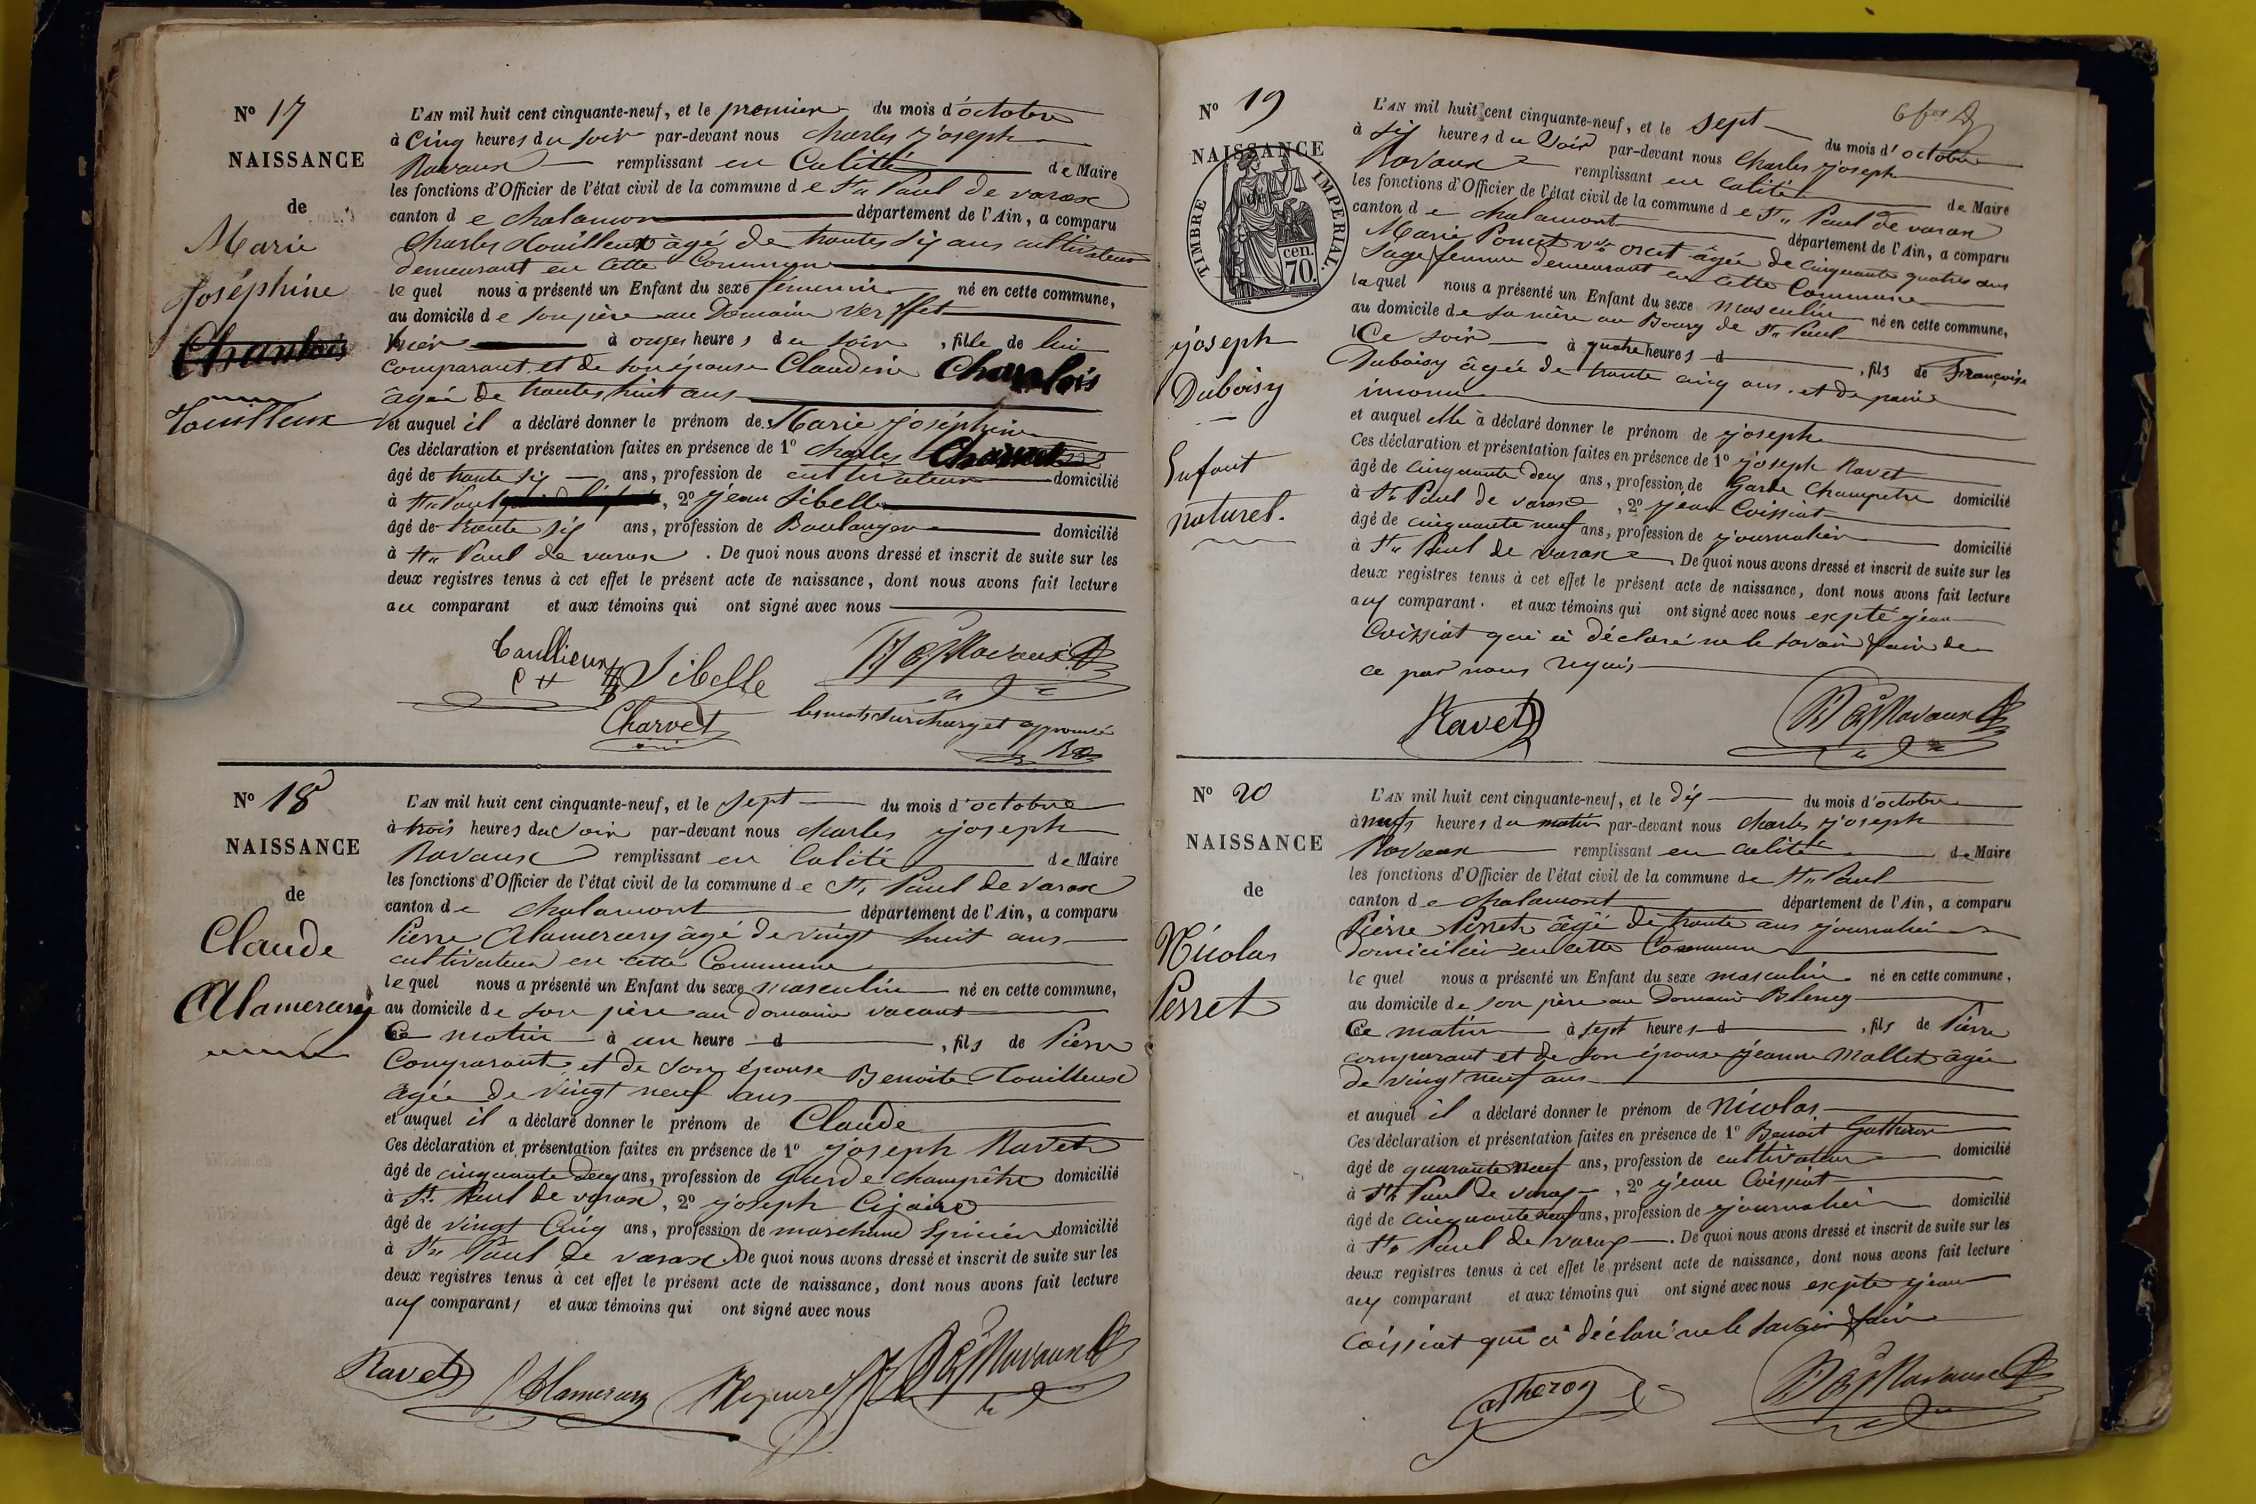 N° 17
NAISSANCE
de
Marie
Joséphine
Chanlois
Touilleux
L'AN mil huit cent cinquante-neuf, et le premier du mois d'octobre
à Cinq heures du soir par-devant nous charles joseph
Ravaux remplissant en Calité de Maire
les fonctions d'Officier de l'état civil de la commune de St Paul de varax
canton de chalamon département de l'Ain, a comparu
charles Touilleux âgé de trantes six ans cultivateur
demeurant en cette Commune
lequel nous a présenté un Enfant du sexe féminin né en cette commune,
au domicile de son père au Domaine
hier à onzes heures du soir, fille de lui
comparant, et de son épouse Claudine Chanlois
âgée de trantes huit ans
et auquel il a déclaré donner le prénom de Marie joséphine
Ces déclaration et présentation faites en présence de 1° charles Charvet
âgé de trante six ans, profession de cultivateur domicilié
à St Paul, 2° jean Sibelle
âgé de trante six ans, profession de Boulanger domicilié
à St Paul de varax. De quoi nous avons dressé et inscrit de suite sur les
deux registres tenus à cet effet le présent acte de naissance, dont nous avons fait lecture
au comparant et aux témoins qui ont signé avec nous
Sibelle
Ravaux
Charvet
les mots surcharget approuvé
N° 18
NAISSANCE
de
Claude
Alamercery
L'AN mil huit cent cinquante-neuf, et le sept du mois d'octobre
à trois heures du soir par-devant nous charles joseph
Ravaux remplissant en Calité de Maire
les fonctions d'Officier de l'état civil de la commune de St Paul de varax
canton de chalamont département de l'Ain, a comparu
Pierre Alamercery âgé de vingt huit ans
cultivateur en cette Commune
lequel nous a présenté un Enfant du sexe masculin né en cette commune,
au domicile de son père au domaine vacant
Ce matin à un heure d, fils de Pierre
Comparant, et de son épouse Benoite Touilleux
âgée de vingt neuf ans
et auquel il a déclaré donner le prénom de Claude
Ces déclaration et présentation faites en présence de 1° joseph Ravet
âgé de cinquante deux ans, profession de Garde champêtre domicilié
à St Paul de varax, 2° joseph
âgé de vingt Cinq ans, profession de marchand Epicier domicilié
à St Paul de varax. De quoi nous avons dressé et inscrit de suite sur les
deux registres tenus à cet effet le présent acte de naissance, dont nous avons fait lecture
aux comparants et aux témoins qui ont signé avec nous
Ravet
Alamercery
Ravaux
N° 19
NAISSANCE
de
TIMBRE IMPERIAL.
70. cen.
joseph
Duboisy
Enfant
naturel.
L'AN mil huit cent cinquante-neuf, et le sept du mois d'octobre
à six heures du Soir par-devant nous Charles joseph
Ravaux remplissant en Calité de Maire
les fonctions d'Officier de l'état civil de la commune de St Paul de varax
canton de chalamont département de l'Ain, a comparu
Marie Poncet vve orcet âgée de cinquante quatres ans
Sage femme demeurant en cette Commune
laquel nous a présenté un Enfant du sexe masculin né en cette commune,
au domicile de sa mère au Bourg de St Paul
Ce soir à quatre heures d, fils de Françoise
Duboisy âgée de trante cinq ans. et de père
inconnu
et auquel elle à déclaré donner le prénom de joseph
Ces déclaration et présentation faites en présence de 1° joseph Ravet
âgé de cinquante deux ans, profession de Garde Champetre domicilié
à St Paul de varax, 2° jean Coissiat
âgé de cinquante neuf ans, profession de journalier domicilié
à St Paul de varax De quoi nous avons dressé et inscrit de suite sur les
deux registres tenus à cet effet le présent acte de naissance, dont nous avons fait lecture
aux comparant. et aux témoins qui ont signé avec nous exepté jean
Coissiat qui à déclaré ne le savoir faire de
ce par nous requis
Ravet
Ravaux
N° 20
NAISSANCE
de
Nicolas
Perret
L'AN mil huit cent cinquante-neuf, et le dix du mois d'octobre
à neufs heures du matin par-devant nous Charles joseph
Ravaux remplissant en calité de Maire
les fonctions d'Officier de l'état civil de la commune de St Paul
canton de chalamont département de l'Ain, a comparu
Pierre Perret âgé de trante ans journalier
Domicilier en cette Commune
lequel nous a présenté un Enfant du sexe masculin né en cette commune,
au domicile de son père au Domaine
Ce matin à sept heures d, fils de Pierre
comparant et de son épouse jeanne Mallet âgée
de vingt neuf ans
et auquel il a déclaré donner le prénom de Nicolas
Ces déclaration et présentation faites en présence de 1° Benoit Gatheron
âgé de quarante neuf ans, profession de cultivateur domicilié
à St Paul de varax, 2° jean Coissiat
âgé de cinquante neuf ans, profession de journalier domicilié
à St Paul de varax. De quoi nous avons dressé et inscrit de suite sur les
deux registres tenus à cet effet le présent acte de naissance, dont nous avons fait lecture
aux comparant et aux témoins qui ont signé avec nous exepté jean
Coissiat qui à déclaré ne le savoir faire
gatheron
Ravaux